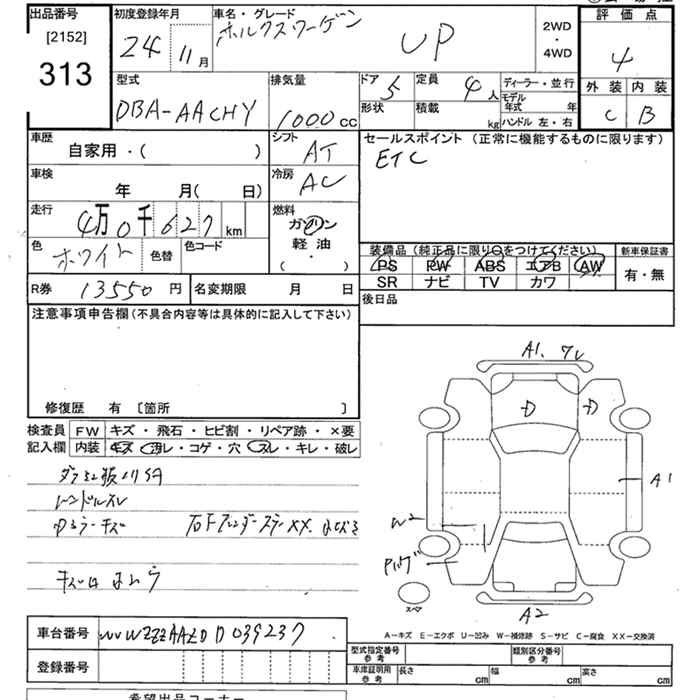 出品番号
[2152]
313
初度登録年月
24 11月
車名・グレード
ホルクスワーゲン UP
2WD
・
4WD
評価点
4
外装 内装
C B
型式
DBA-AACHY
排気量
1000cc
ドア 5
形状
定員 4人
積載 kg
ディーラー・並行
モデル年式 年
ハンドル 左・右
車歴
自家用・( )
シフト
AT
セールスポイント (正常に機能するものに限ります)
ETC
車検
年 月( 日)
冷房
AC
走行
4万0千627km
燃料
ガソリン
軽油
( ・ )
色
ホワイト
色替
色コード
装備品 (純正品に限り○をつけてください)
PS PW ABS エアB AW
SR ナビ TV カワ
新車保証書
有・無
R券 13550円
名変期限 月 日
後日品
注意事項申告欄 (不具合内容等は具体的に記入して下さい)
修復歴 有 〔箇所 〕
検査員
記入欄
FW キズ・飛石・ヒビ割・リペア跡・×要
内装 キズ・汚レ・コゲ・穴・スレ・キレ・破レ
A1.
D D
A1
W2
A2
スペ
A−キズ E−エクボ U−凹み W−補修跡 S−サビ C−腐食 XX−交換済
車台番号
WVWZZZAAZDD039237
登録番号
型式指定番号
参考
類別区分番号
参考
車庫証明用
参考
長さ cm
幅 cm
高さ cm
希望出品コーナー